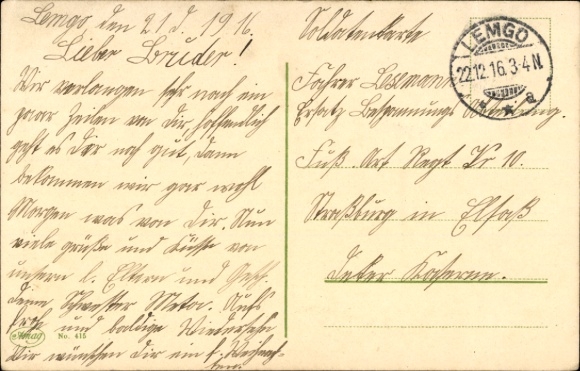 Lemgo den 21. d. 1916.
Lieber Bruder!
Wir verlangen sehr nach ein
paar Zeilen von dir, hoffendlich
geht es Dir noch gut, dann
bekommen wir gar wohl
Morgen was von Dir. Nun
viele grüße und Küsse von
unsern l. Eltern und Gesch.
deine Schwester Meta. Auf
und baldige Wiedersehn
Wir wünschen dir ein f. Weihnach-
ten.
Amag
No. 415
Soldatenkarte
LEMGO
22.12.16.3-4N.
Fahrer
Ersatz Bespannungs Abteilung.
Fuß Art Regt Nr 10.
Straßburg in Elsaß
Kaserne.